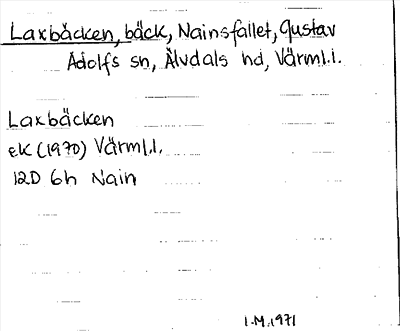 Laxbäcken, bäck, Nainsfallet, Gustav
Adolfs sn, Älvdals hd, Värml.l.
Laxbäcken
eK (1970) Värml.l.
12D 6h Nain
I.M. 1971